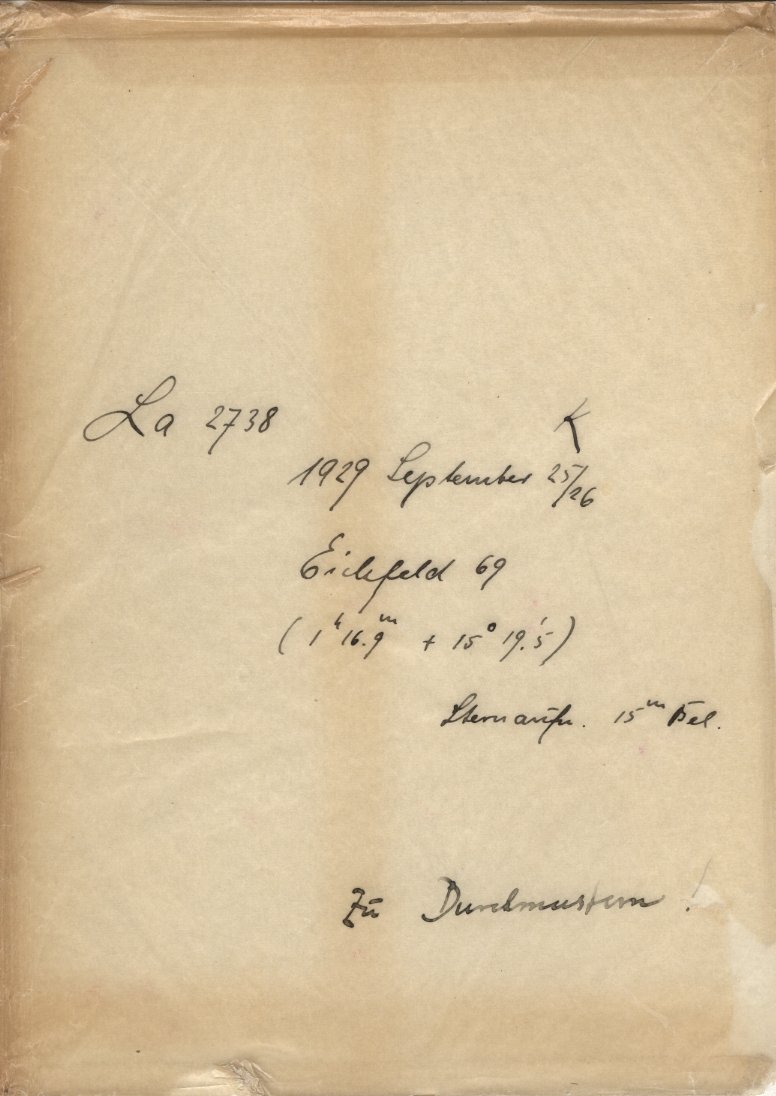 La 2738 K
1929 September 25/26
Eichfeld 69
(1ʰ 16.9ᵐ + 15° 19.'5)
Sternaufn. 15ᵐ Bel.
Zu Durchmustern!